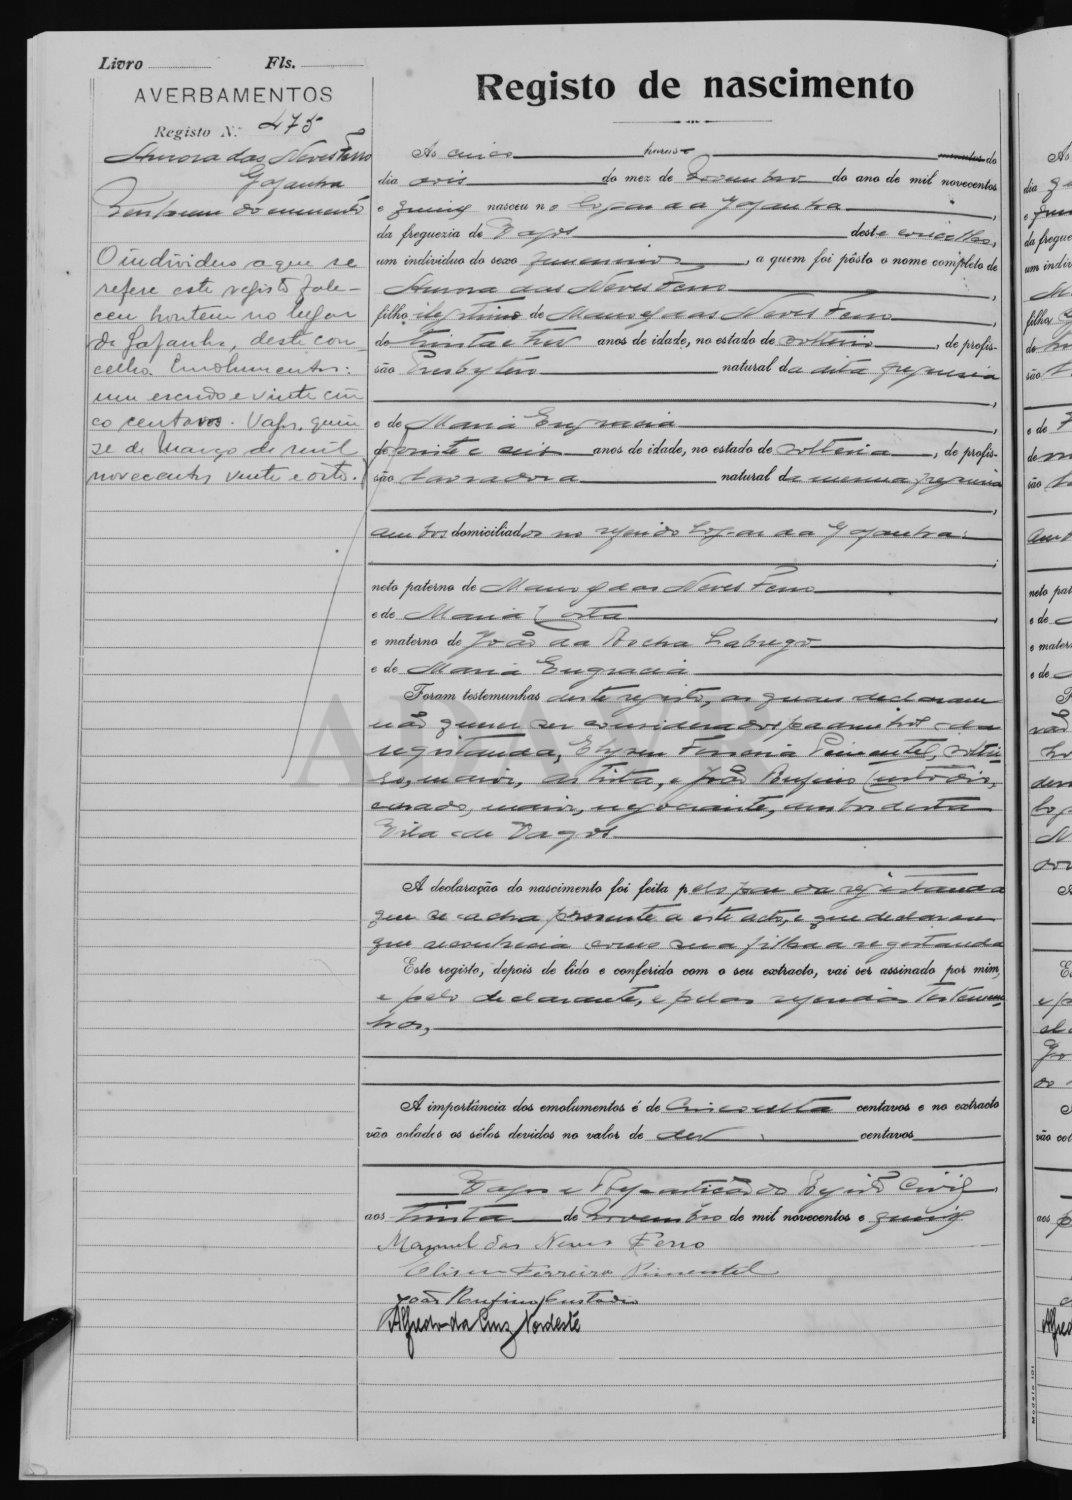 Livro Fls.
AVERBAMENTOS
Registo N.º 475
Aurora das Neves Ferro
Gafanha
Nenhum documento
O individuo a que se
refere este registo fale-
ceu hontem no lugar
da Gafanha, deste con-
celho. Emolumentos:
um escudo e vinte cin-
co centavos. Vagos, quin-
ze de Março de mil
novecentos vinte e oito.
Registo de nascimento
Ás cinco horas e minutos do
dia do mez de Novembro do ano de mil novecentos
e quinze nasceu no Logar da Gafanha,
da freguezia de Vagos deste concelho,
um individuo do sexo femenino, a quem foi pôsto o nome completo de
Aurora das Neves Ferro,
filha ilegitima de Manoel das Neves Ferro,
de trinta e tres anos de idade, no estado de solteiro, de profis-
são Presbytero natural da dita freguesia
,
e de Maria Engracia,
de vinte e seis anos de idade, no estado de solteira, de profis-
são lavradora natural da mesma freguesia
,
ambos domiciliados no referido Logar da Gafanha
;
neto paterno de Manoel das Neves Ferro
e de Maria Costa,
e materno de João da Rocha Labrego
e de Maria Engracia
Foram testemunhas deste registo, as quaes declararam
não querer ser considerados padrinhos da
registanda, Elyseu Ferreira Pimentel, soltei-
ro, maior, artista, e João Rufino Custodio,
casado, maior, negociante, ambos desta
Vila de Vagos
A declaração do nascimento foi feita pelo pae da registanda
que se acha presente a este acto, e que declarou
que reconhecia como sua filha a registanda
Este registo, depois de lido e conferido com o seu extracto, vai ser assinado por mim,
e pelo declarante, e pelas referidas testemu-
nhas,
A importância dos emolumentos é de cincoenta centavos e no extracto
vão colados os sêlos devidos no valor de dez centavos
Vagos e Repartição do Registo Civil,
aos trinta de Novembro de mil novecentos e quinze
Manuel das Neves Ferro
Eliseu Ferreira Pimentel
João Rufino Custodio
Alfredo da Cruz Nordeste
Modelo 101